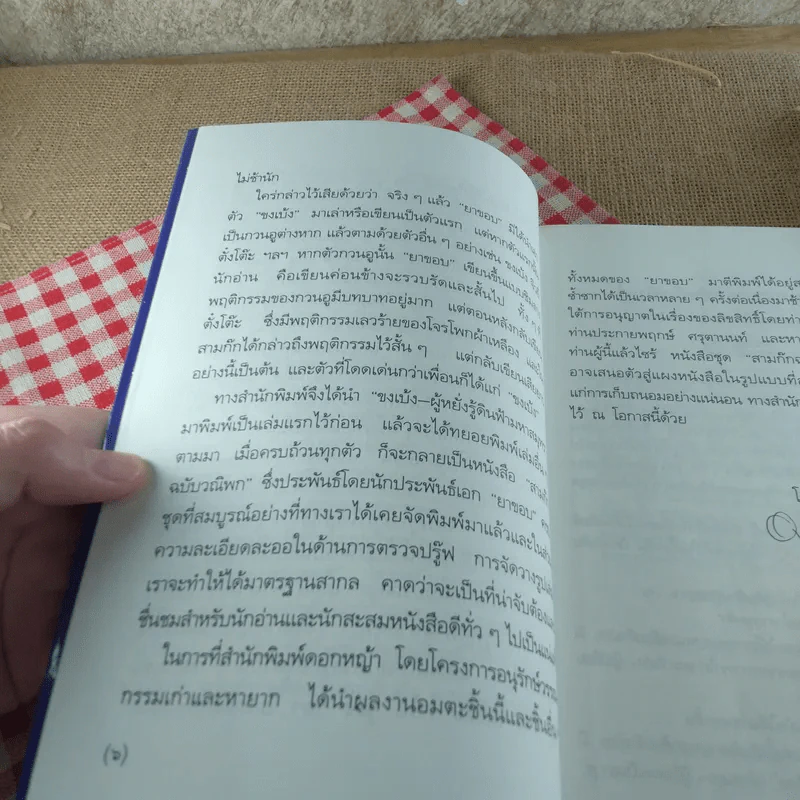 ไม่ช้านัก
ใคร่กล่าวไว้เสียด้วยว่า จริง ๆ แล้ว "ยาขอบ" มิได้
ตัว "ขงเบ้ง" มาเล่าหรือเขียนเป็นตัวแรก แต่หาก
เป็นกวนอูต่างหาก แล้วตามด้วยตัวอื่น ๆ อย่างเช่น ขงเบ้ง
ตั๋งโต๊ะ ฯลฯ หากตัวกวนอูนั้น "ยาขอบ" เขียนขึ้นแบบ
นักอ่าน คือเขียนค่อนข้างจะรวบรัดและสั้นไป ทั้ง ๆ
พฤติกรรมของกวนอูมีบทบาทอยู่มาก แต่ตอนหลังกลับ
ตั๋งโต๊ะ ซึ่งมีพฤติกรรมเลวร้ายของโจรโพกผ้าเหลือง
สามก๊กได้กล่าวถึงพฤติกรรมไว้สั้น ๆ แต่กลับเขียนเสีย
อย่างนี้เป็นต้น และตัวที่โดดเด่นกว่าเพื่อนก็ได้แก่ "ขงเบ้ง"
ทางสำนักพิมพ์จึงได้นำ "ขงเบ้ง—ผู้หยั่งรู้ดินฟ้ามหาสมุทร
มาพิมพ์เป็นเล่มแรกไว้ก่อน แล้วจะได้ทยอยพิมพ์เล่มอื่น
ตามมา เมื่อครบถ้วนทุกตัว ก็จะกลายเป็นหนังสือ "สามก๊ก
ฉบับวณิพก" ซึ่งประพันธ์โดยนักประพันธ์เอก "ยาขอบ"
ชุดที่สมบูรณ์อย่างที่ทางเราได้เคยจัดพิมพ์มาแล้วและใน
ความละเอียดละออในด้านการตรวจปรู๊ฟ การจัดวางรูป
เราจะทำให้ได้มาตรฐานสากล คาดว่าจะเป็นที่น่าจับต้อง
ชื่นชมสำหรับนักอ่านและนักสะสมหนังสือดีทั่ว ๆ ไปเป็น
ในการที่สำนักพิมพ์ดอกหญ้า โดยโครงการอนุรักษ์วรรณ
กรรมเก่าและหายาก ได้นำผลงานอมตะชิ้นนี้และชิ้นอื่น
(๖)
ทั้งหมดของ "ยาขอบ" มาตีพิมพ์ได้อยู่
ซ้ำซากได้เป็นเวลาหลาย ๆ ครั้งต่อเนื่องมาช้า
ได้การอนุญาตในเรื่องของลิขสิทธิ์โดยท่า
ท่านประกายพฤกษ์ ศรุตานนท์ และหา
ท่านผู้นี้แล้วไซร้ หนังสือชุด "สามก๊ก
อาจเสนอตัวสู่แผงหนังสือในรูปแบบที่
แก่การเก็บถนอมอย่างแน่นอน ทางสำนัก
ไว้ ณ โอกาสนี้ด้วย